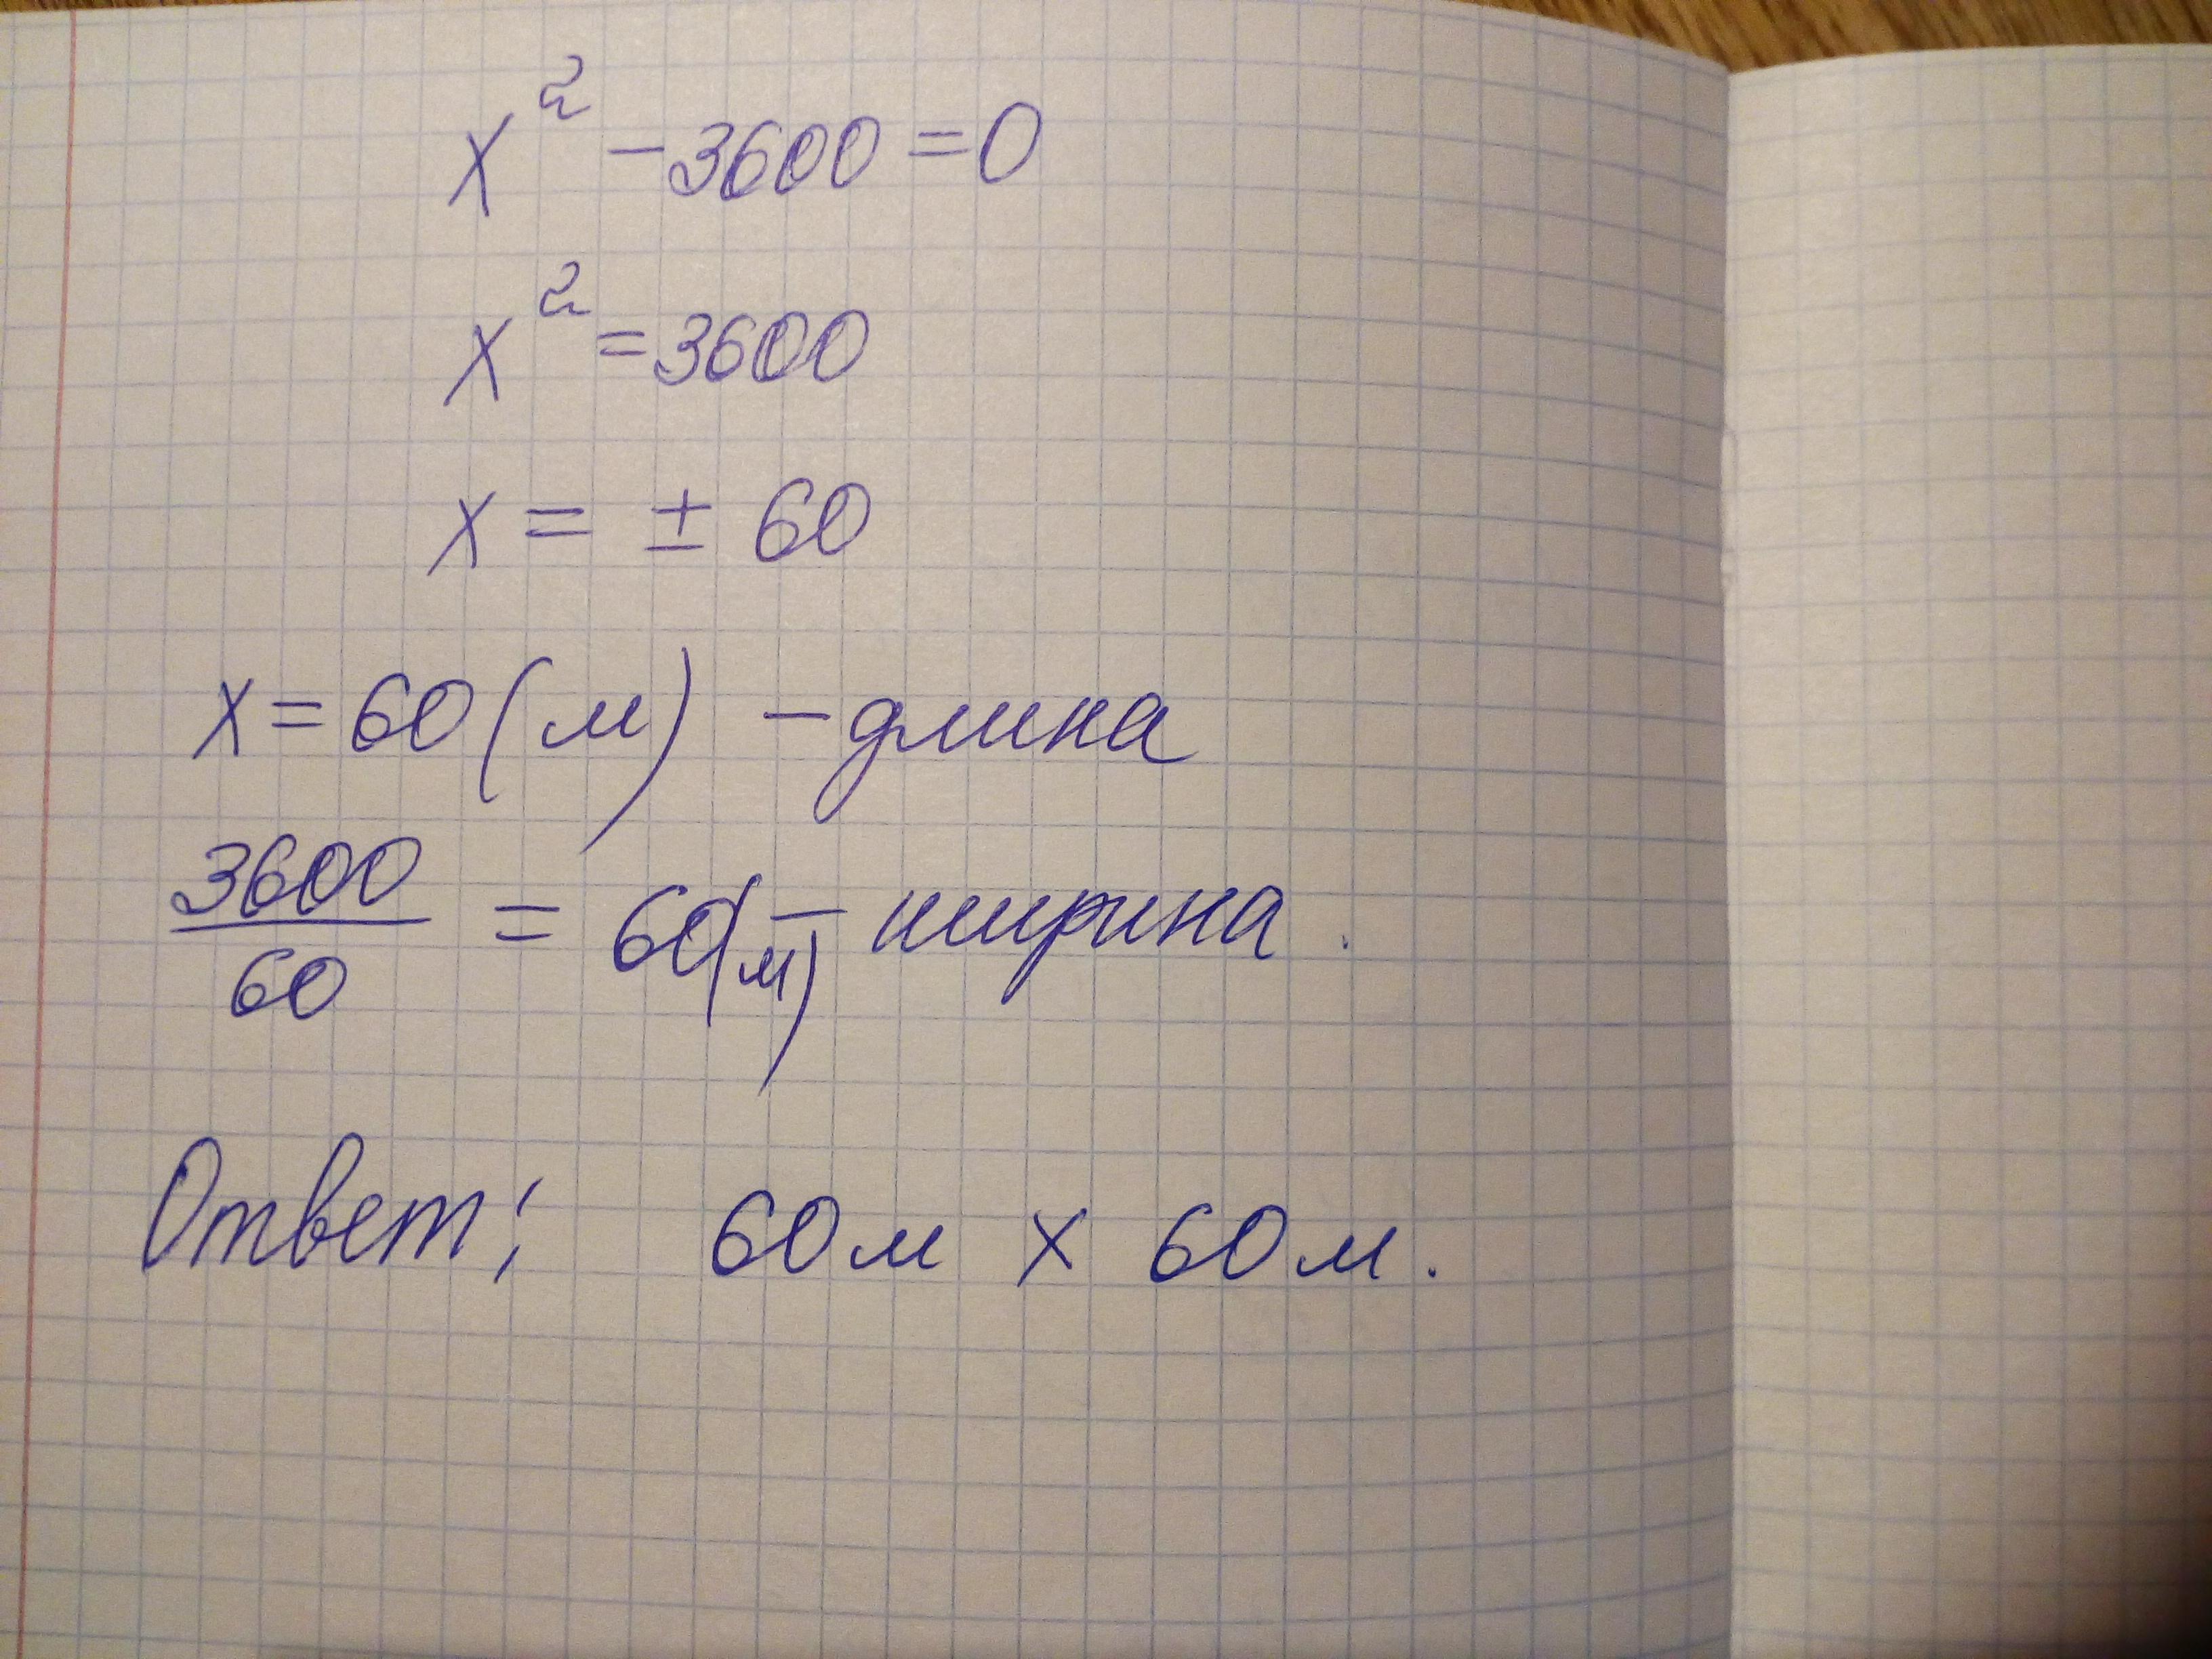 x² - 3600 = 0
x² = 3600
x = ± 60
x = 60 (м) - длина
3600/60 = 60(м) - ширина.
Ответ: 60м х 60м.